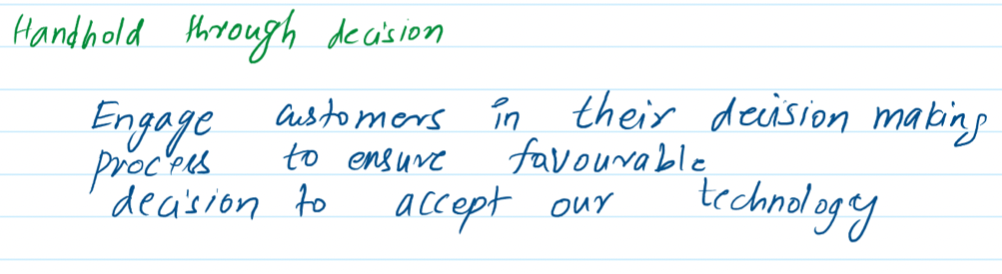 Handhold through decision
Engage customers in their decision making
process to ensure favourable
decision to accept our technology